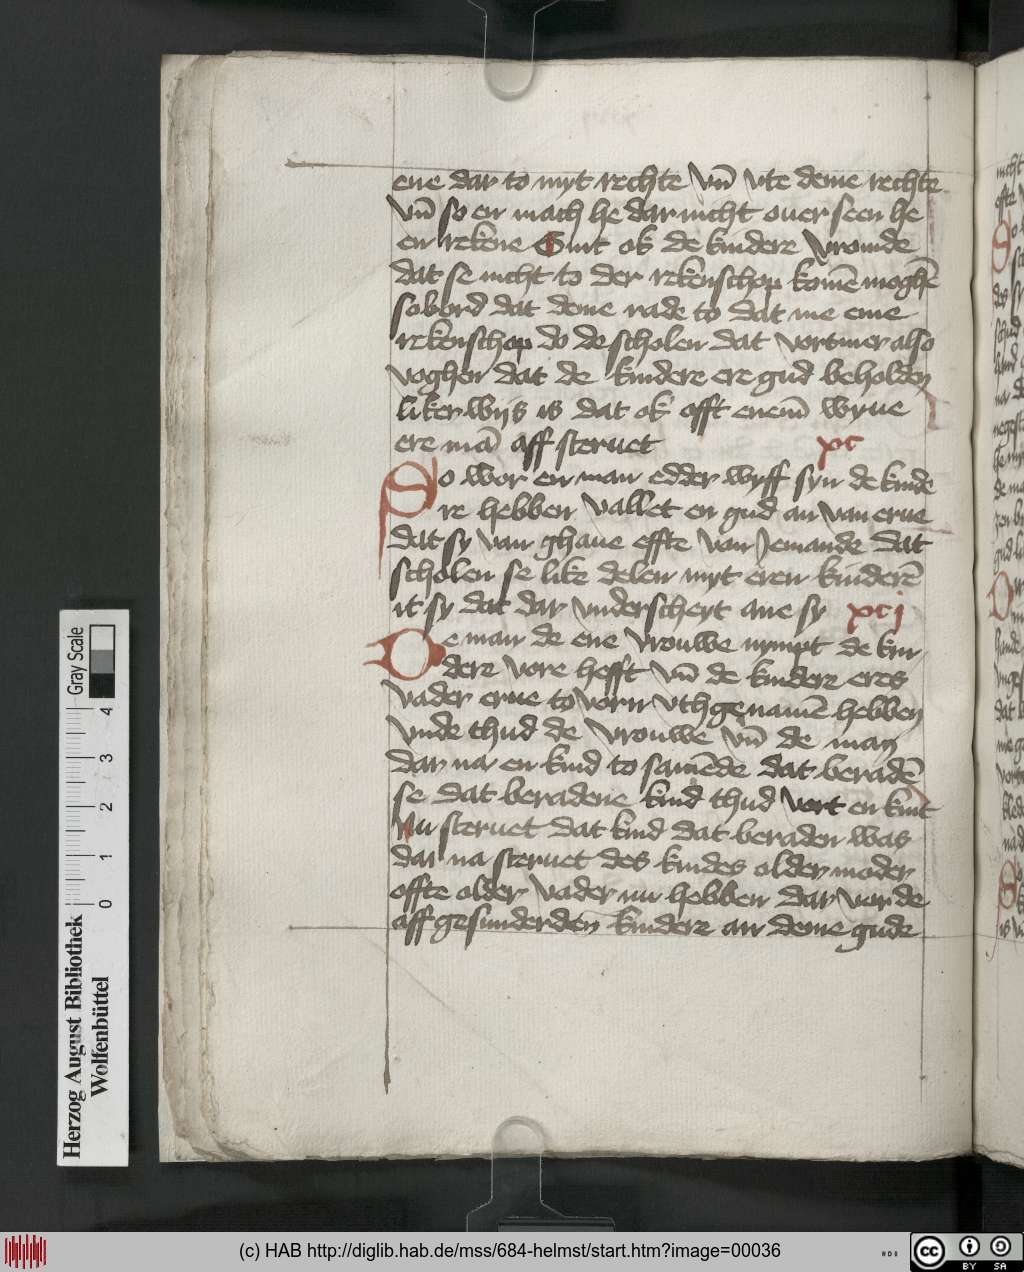 ene dar to myt rechte vn̄ vte deme rechte
vn̄ so en mach he dar nicht ouer seen he
en rekene Sint ok de kindere vromde
dat se nicht to der rekenschop komē moghē
so bord dat deme rade to dat me eme
rekenschop do de scholen dat vortmer also
voghen dat de kindere ere gud beholden
liker wijs is dat ok offt enem̄ wyue
ere mā aff steruet xc
So wor en man edder wyff syn de kinde
re hebben vallet en gud an van erue
dat sy van ghaue effte van Jemande dat
scholen se like delen myt eren kinderē
it sy dat dar vnderscheyt ane sy xcj
De man de ene vrouwe nympt de kin
dere vore hefft vn̄ de kindere eres
vader erue to vorn vthgenamē hebben
vnde thud de vrouwe vn̄ de man
dar na en kind to samēde dat beradē
se dat beradene kind thud vort en kint
Nu steruet dat kind dat beraden was
dar na steruet des kindes older moder
offte older vader nu hebben dar vor de
aff gesunderden kindere an deme gude
Gray Scale
0 1 2 3 4
Herzog August Bibliothek
Wolfenbüttel
(c) HAB http://diglib.hab.de/mss/684-helmst/start.htm?image=00036
cc BY SA